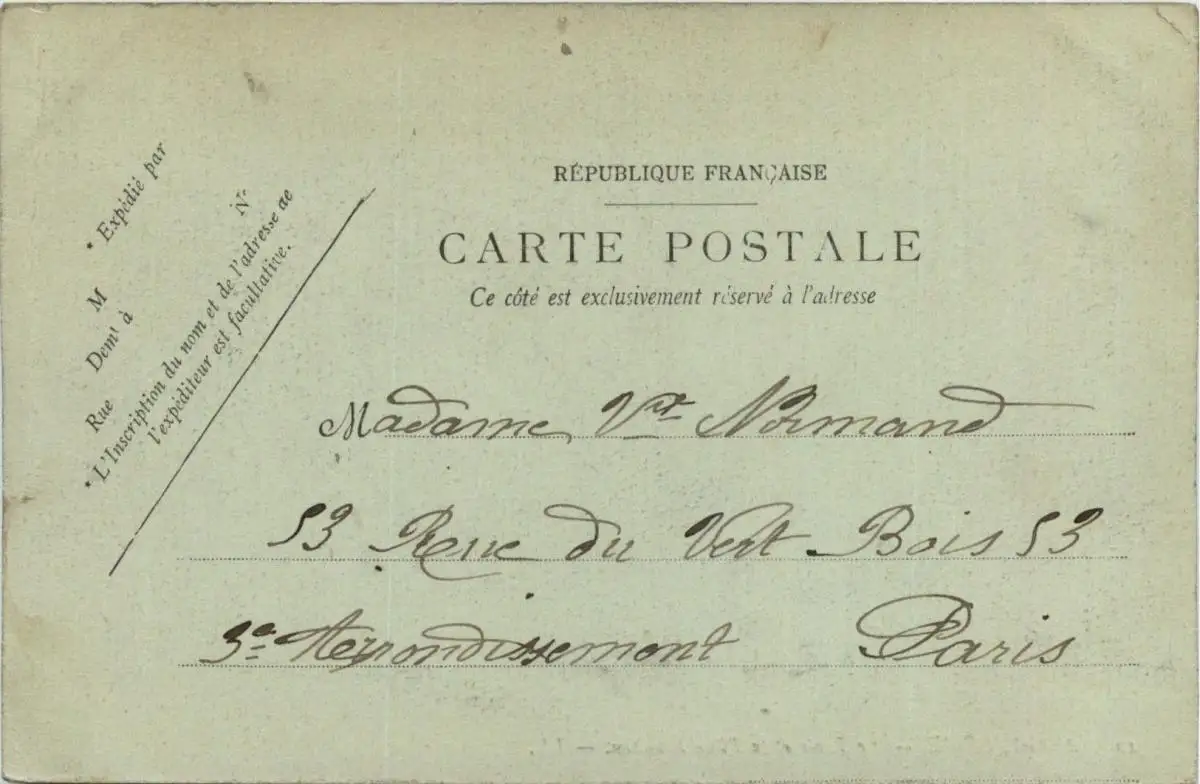 RÉPUBLIQUE FRANÇAISE
CARTE POSTALE
Ce côté est exclusivement réservé à l'adresse
* Expédié par
M
Demt à
Rue N°
* L'Inscription du nom et de l'adresse de
l'expéditeur est facultative.
Madame Normand
53 Rue du Vert Bois 53
3e Arrondissement Paris